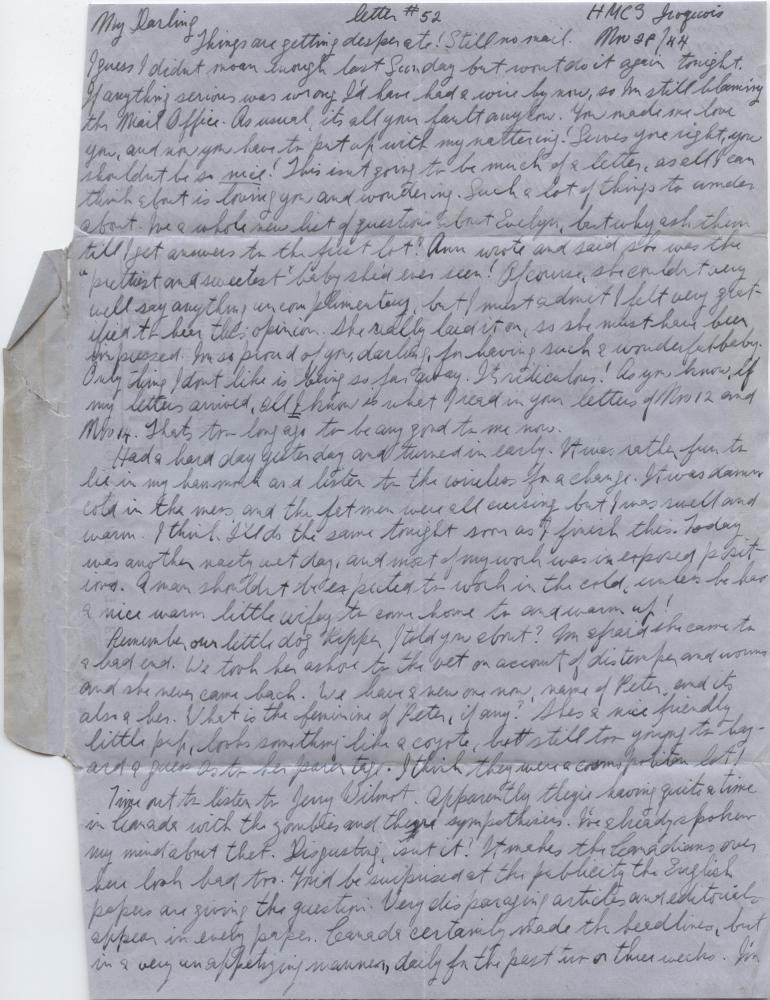 My Darling letter #52 HMCS Iroquois
Things are getting desperate! Still no mail. Nov 28/44
I guess I didnt moan enough last Sunday but wont do it again tonight.
If anything serious was wrong I'd have had a wire by now, so Im still blaming
the Mail Office. As usual, its all your fault anyhow. You made me love
you, and now you have to put up with my nattering! Serves you right, you
shouldnt be so nice! This isnt going to be much of a letter, as all I can
think about is loving you and wondering. Such a lot of things to wonder
about. Ive a whole new list of questions about Evelyn, but why ask them
till I get answers to the first lot? Ann wrote and said she was the
"prettiest and sweetest" baby she'd ever seen! Of course, she couldn't very
well say anything uncomplimentary, but I must admit I felt very grat-
ified to hear this opinion. She really laid it on, so she must have been
impressed. Im so proud of you, darling, for having such a wonderful baby.
Only thing I dont like is being so far away. Its ridiculous! As you know, if
my letters arrived, all I know is what I read in your letters of Nov 12 and
Nov 14. Thats too long ago to be any good to me now.
Had a hard day yesterday and turned in early. It was rather fun to
lie in my hammock and listen to the wireless for a change. It was damn
cold in the mess and the fet men were all cursing but I was swell and
warm. I think I'll do the same tonight soon as I finish this. Today
was another nasty wet day, and most of my work was in exposed posit-
ions. A man shouldn't be expected to work in the cold, unless he has
a nice warm little wifey to come home to and warm up!
Remember our little dog Kipper, I told you about? Im afraid she came to
a bad end. We took her ashore to the vet on account of distemper and worms
and she never came back. We have a new one now, name of Peter, and its
also a her. What is the feminine of Peter, if any? Shes a nice friendly
little pup, looks something like a coyote, but still too young to haz-
ard a guess as to her parentage. I think they were a cosmopolitan lot!
Time out to listen to Jerry Wilmot. Apparently they're having quite a time
in Canada with the zombies and their sympathisers. I've already spoken
my mind about that. Disgusting, isnt it? It makes the Canadians over
here look bad too. You'd be surprised at the publicity the English
papers are giving the question. Very disparaging articles and editorials
appear in every paper. Canada certainly made the headlines, but
in a very unappetizing manner, daily for the past two or three weeks. Im